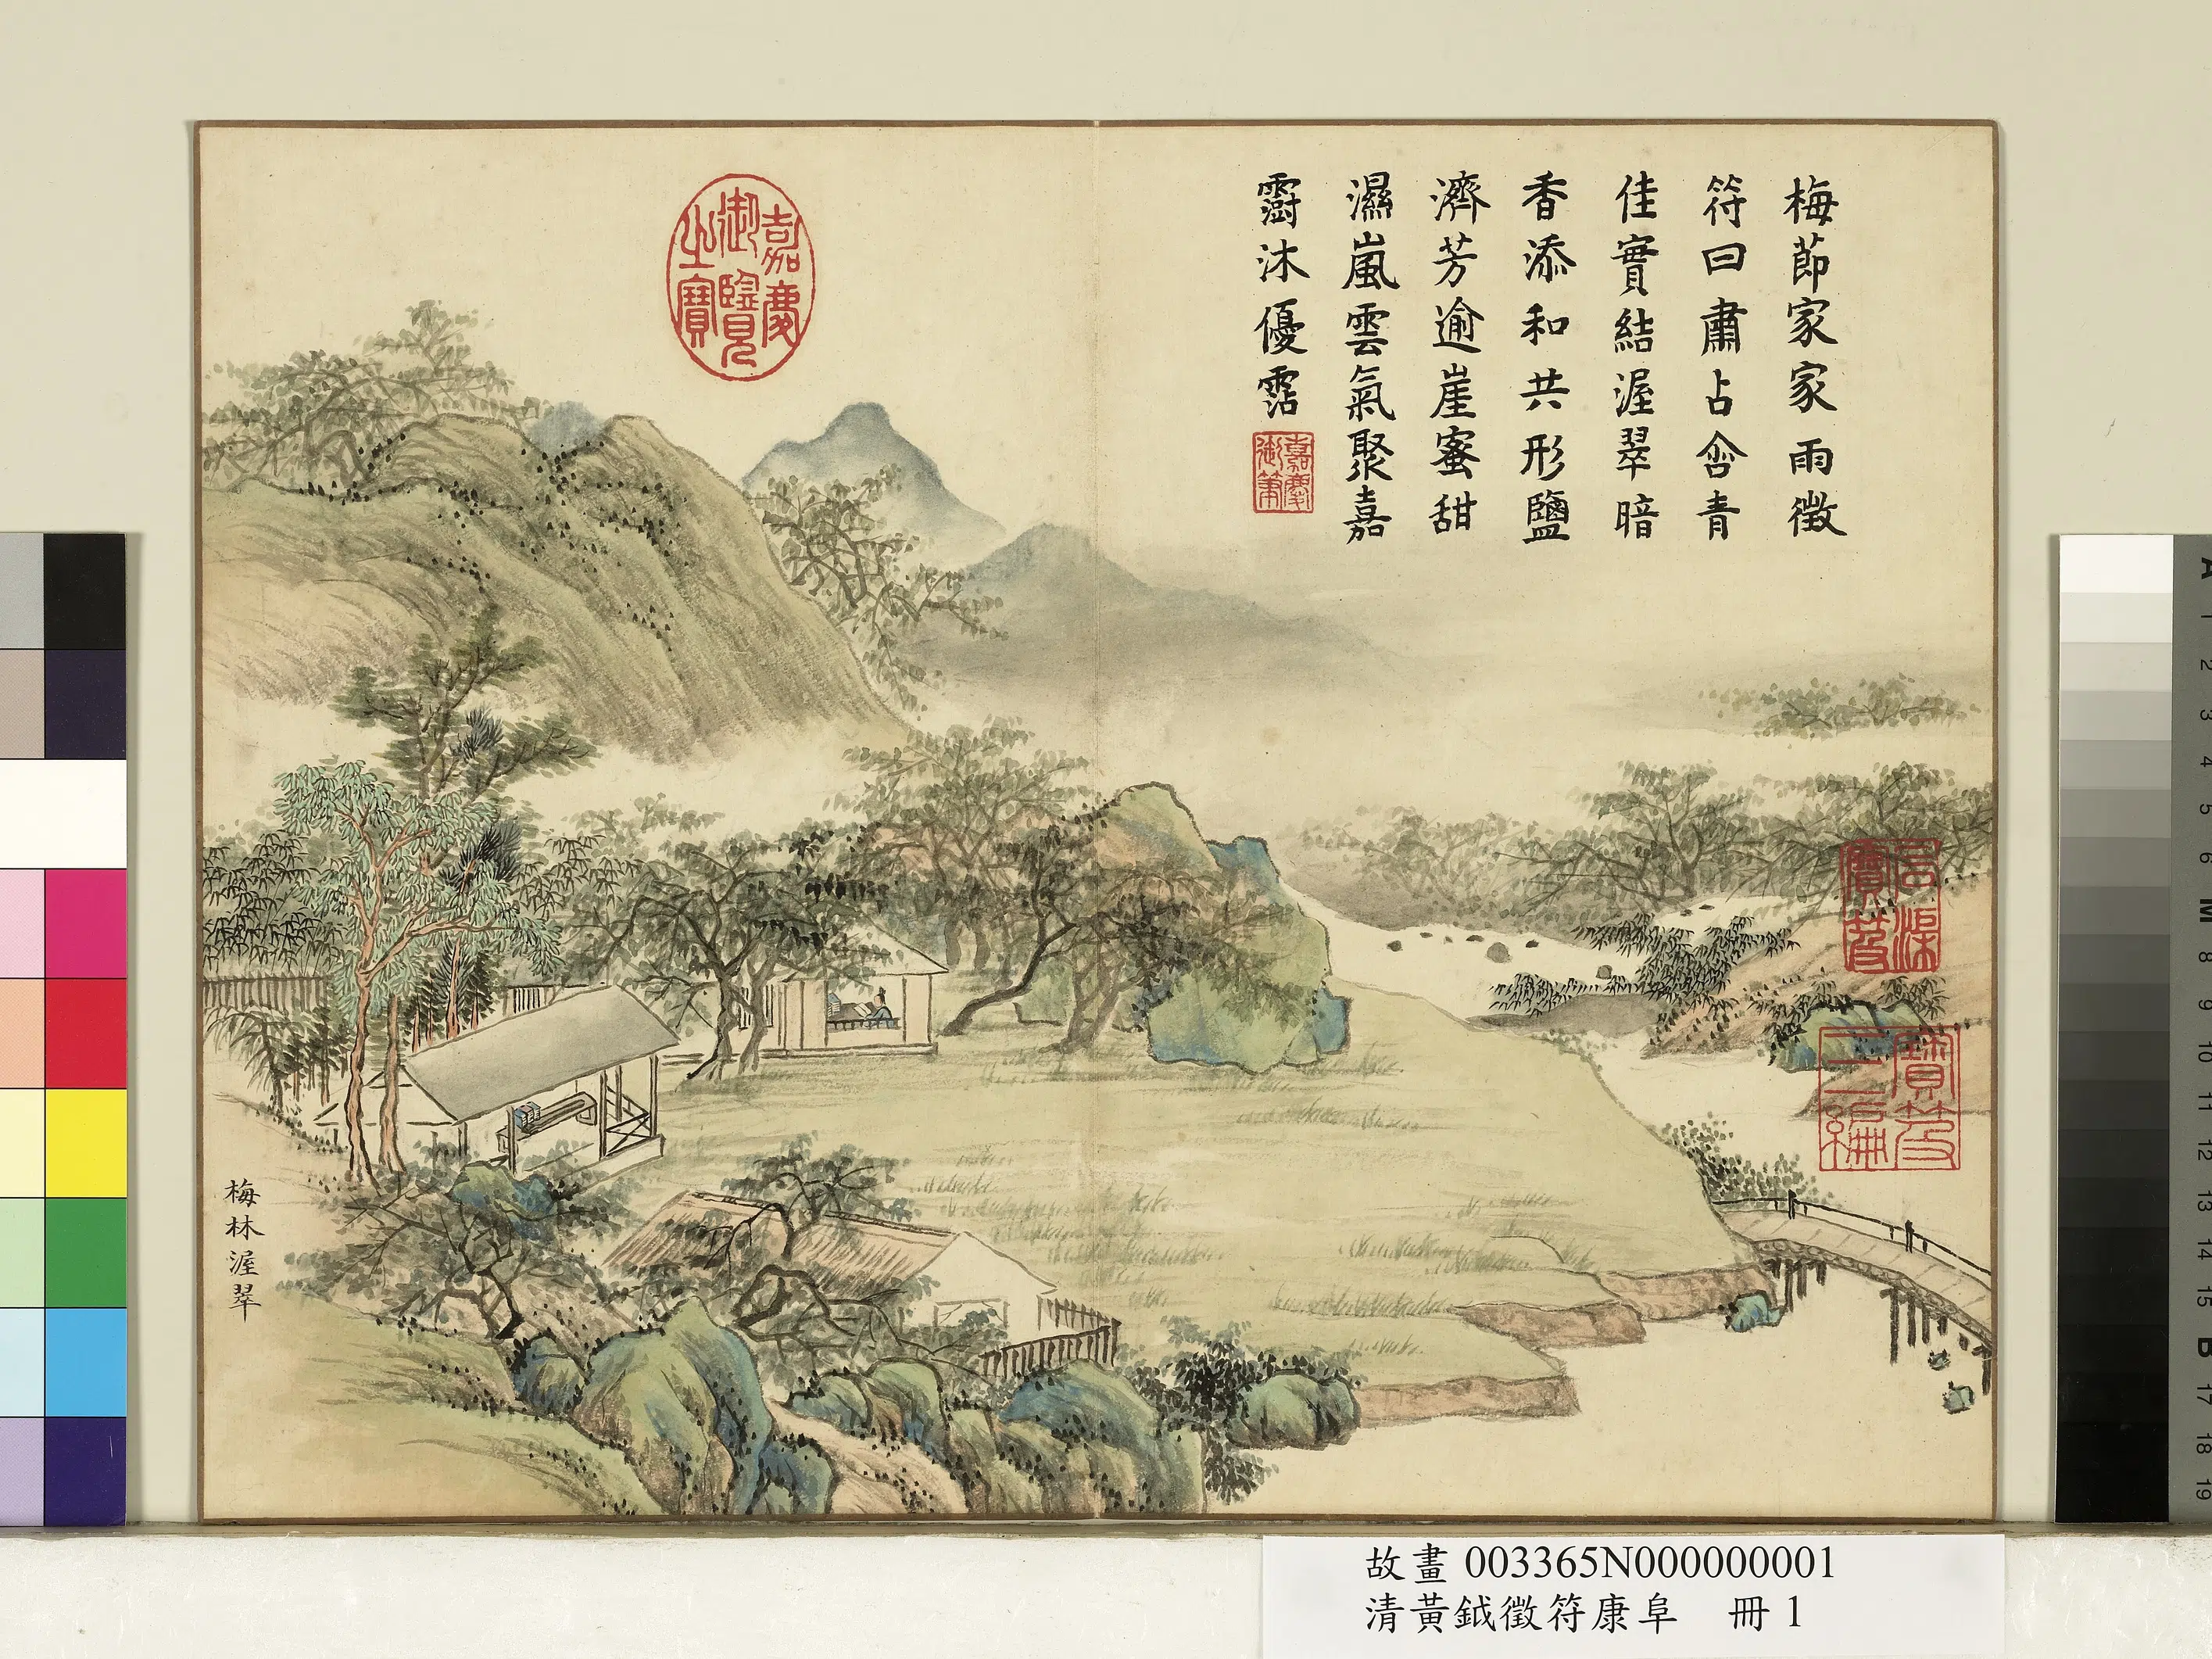 梅莭家家雨徵
符曰肅占含青
佳實結渥翠暗
香添和共形鹽
濟芳逾崖蜜甜
濕嵐雲氣聚嘉
霨沐優霑
嘉慶御筆
嘉慶御覽之寶
石渠寶笈
寶笈三編
梅林渥翠
故畫 003365N000000001
清黃鉞徵符康阜 冊 1
A
1
2
3
4
5
6
M
8
9
10
11
12
13
14
15
B
17
18
19